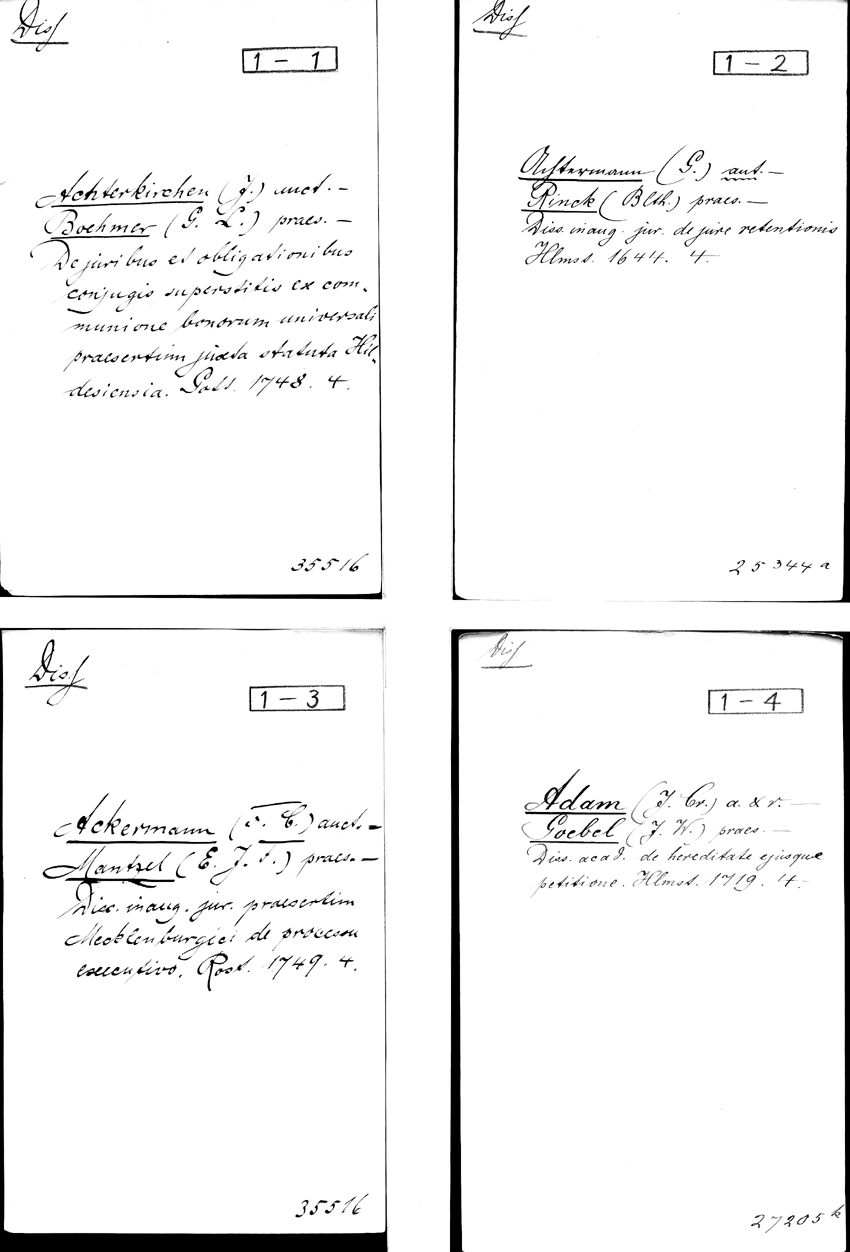 Diss
1 - 1
Achterkirchen (J.) auct. —
Boehmer (G. L.) praes. —
De juribus et obligationibus
conjugis superstitis ex com-
munione bonorum universali
praesertim juxta statuta Hil-
desiensia. Gott. 1748. 4.
35516
Diss
1 - 2
Achtermann (G.) aut. —
Rinck (Blth.) praes. —
Diss. inaug. jur. de jure retentionis
Hlmst. 1644. 4.
25344a
Diss
1 - 3
Ackermann (F. C.) auct. —
Mantzel (E. J. F.) praes. —
Diss. inaug. jur. praesertim
Mecklenburgici de processu
executivo. Rost. 1749. 4.
35516
Diss
1 - 4
Adam (J. Cr.) a. & r. —
Goebel (J. W.) praes. —
Diss. acad. de hereditate ejusque
petitione. Hlmst. 1719. 4.
27205k